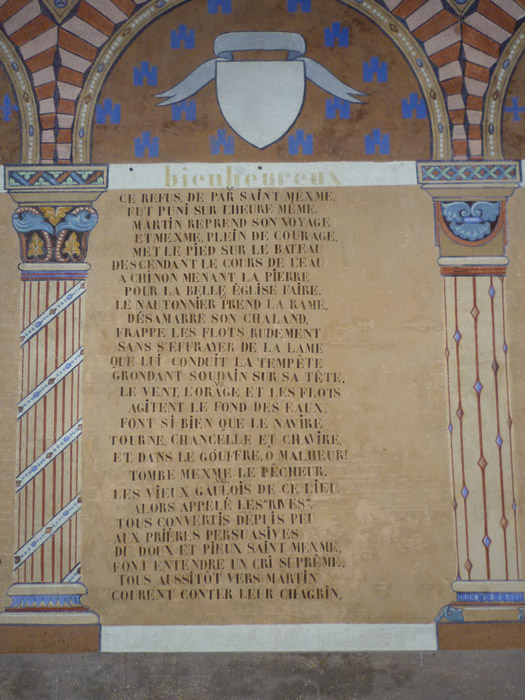 bienheureux
CE REFUS, DE PAR SAINT MEXME,
FUT PUNI SUR L'HEURE MÊME.
MARTIN REPREND SON VOYAGE
ET MEXME, PLEIN DE COURAGE,
MET LE PIED SUR LE BATEAU
DESCENDANT LE COURS DE L'EAU
A CHINON MENANT LA PIERRE
POUR LA BELLE ÉGLISE FAIRE.
LE NAUTONNIER PREND LA RAME,
DÉSAMARRE SON CHALAND,
FRAPPE LES FLOTS RUDEMENT
SANS S'EFFRAYER DE LA LAME
QUE LUI CONDUIT LA TEMPÊTE
GRONDANT SOUDAIN SUR SA TÊTE.
VI.
LE VENT, L'ORAGE ET LES FLOTS
AGITENT LE FOND DES EAUX.
FONT SI BIEN QUE LE NAVIRE,
TOURNE, CHANCELLE ET CHAVIRE,
ET, DANS LE GOUFFRE, Ô MALHEUR!
TOMBE MEXME LE PÊCHEUR.
VII.
LES VIEUX GAULOIS DE CE LIEU,
ALORS APPELÉ LES "RIVES",
TOUS CONVERTIS DEPUIS PEU
AUX PRIÈRES PERSUASIVES
DU DOUX ET PIEUX SAINT MEXME,
FONT ENTENDRE UN CRI SUPRÊME.
TOUS AUSSITÔT VERS MARTIN
COURENT CONTER LEUR CHAGRIN,